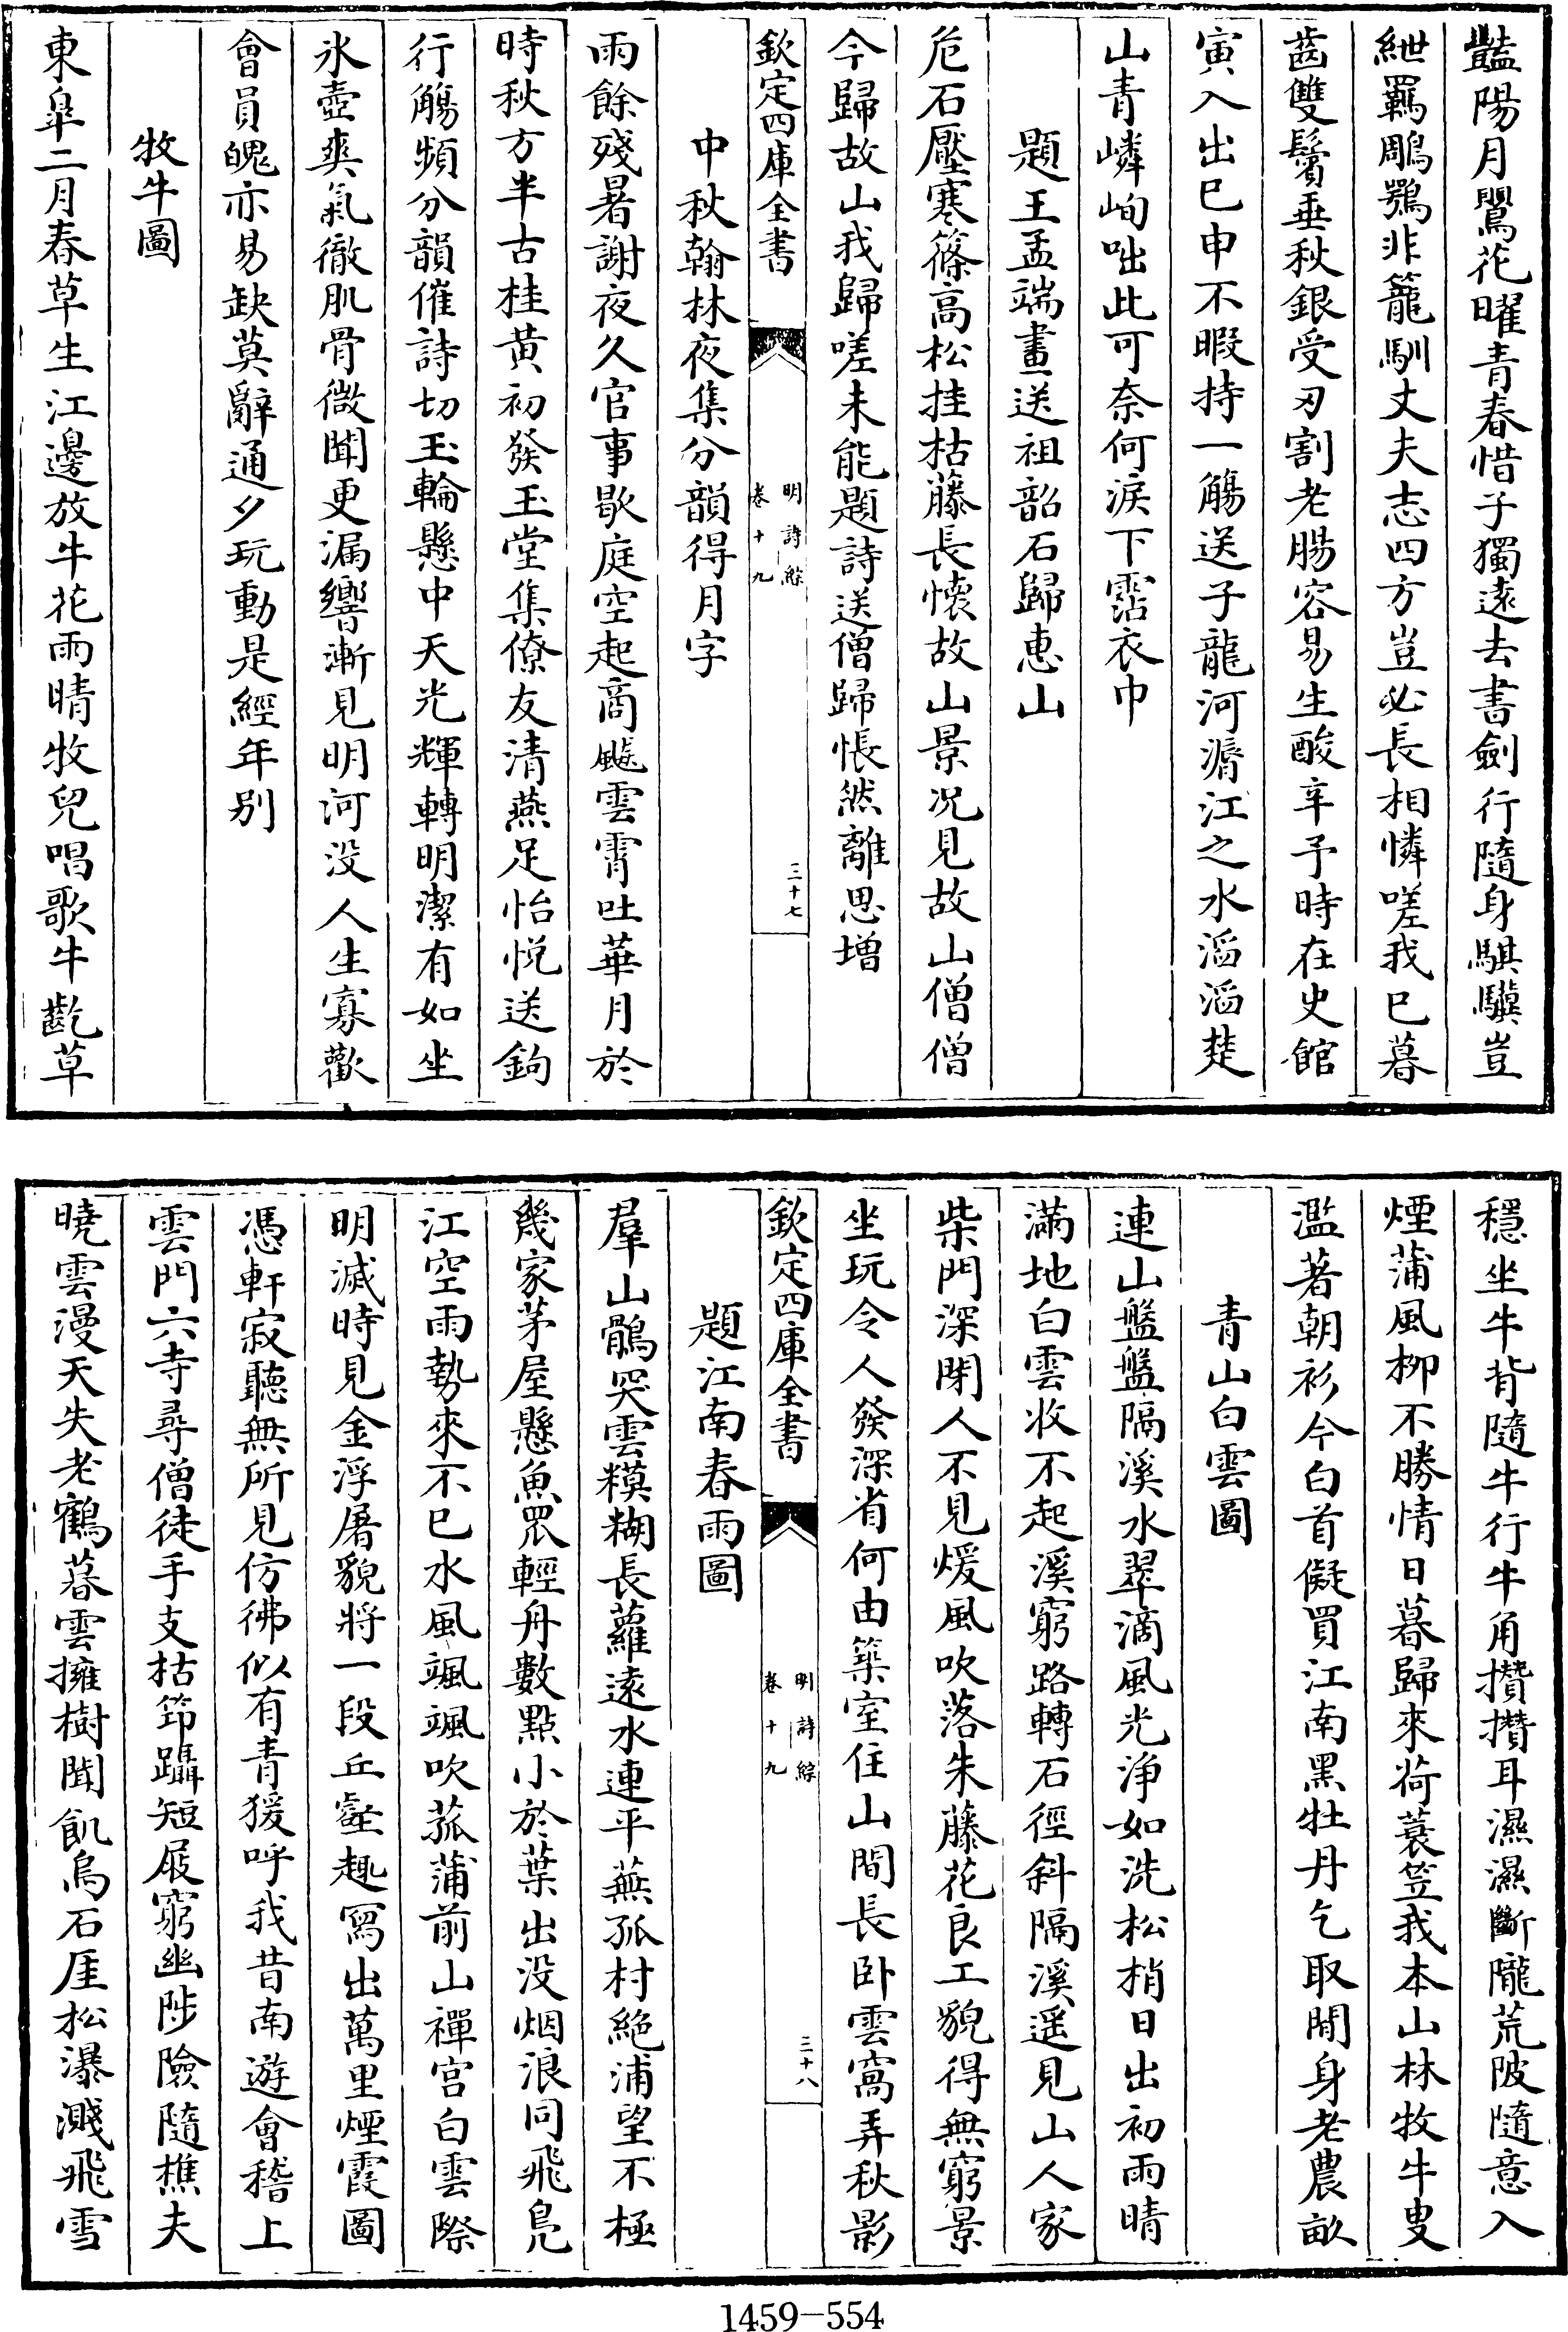 豔陽月鸎花曜青春惜子獨遠去書劍行隨身騏驥豈
紲羈鵰鶚非籠馴丈夫志四方豈必長相憐嗟我已暮
齒雙鬢垂秋銀受刃割老腸容易生酸辛予時在史館
寅入出已申不暇持一觴送子龍河漘江之水滔滔楚
山青嶙峋咄此可奈何淚下霑衣巾
題王孟端畫送祖韶石歸惠山
危石壓寒篠高松挂枯藤長懷故山景况見故山僧僧
今歸故山我歸嗟未能題詩送僧歸悵然離思增
欽定四庫全書
明詩綜
卷十九
三十七
中秋翰林夜集分韻得月字
雨餘殘暑謝夜久官事歇庭空起商飈雲霄吐華月於
時秋方半古桂黄初發玉堂集僚友清燕足怡悦送鉤
行觴頻分韻催詩切玉輪懸中天光輝轉明潔有如坐
氷壺爽氣徹肌骨微聞更漏響漸見明河没人生寡歡
會員魄亦易缺莫辭通夕玩動是經年别
牧牛圖
東皐二月春草生江邊放牛花雨晴牧兒唱歌牛齕草
穩坐牛背隨牛行牛角攢攢耳濕濕斷隴荒陂隨意入
煙蒲風栁不勝情日暮歸來荷蓑笠我本山林牧牛叟
濫著朝衫今白首儗買江南黑牡丹乞取閒身老農畝
青山白雲圖
連山盤盤隔溪水翠滴風光淨如洗松梢日出初雨晴
滿地白雲收不起溪窮路轉石徑斜隔溪遥見山人家
柴門深閉人不見煖風吹落朱藤花良工貌得無窮景
坐玩令人發深省何由築室住山間長卧雲窩弄秋影
欽定四庫全書
明詩綜
卷十九
三十八
題江南春雨圖
羣山鶻突雲糢糊長蘿遠水連平蕪孤村絶浦望不極
幾家茅屋懸魚罛輕舟數點小於葉出没烟浪同飛鳬
江空雨勢來不已水風颯颯吹菰蒲前山禪宫白雲際
明滅時見金浮屠貌將一段丘壑趣冩出萬里煙霞圖
憑軒寂聽無所見仿彿似有青猨呼我昔南遊會稽上
雲門六寺尋僧徒手支枯筇躡短屐窮幽陟險隨樵夫
曉雲漫天失老鶴暮雲擁樹聞飢烏石厓松瀑濺飛雪
1459-554